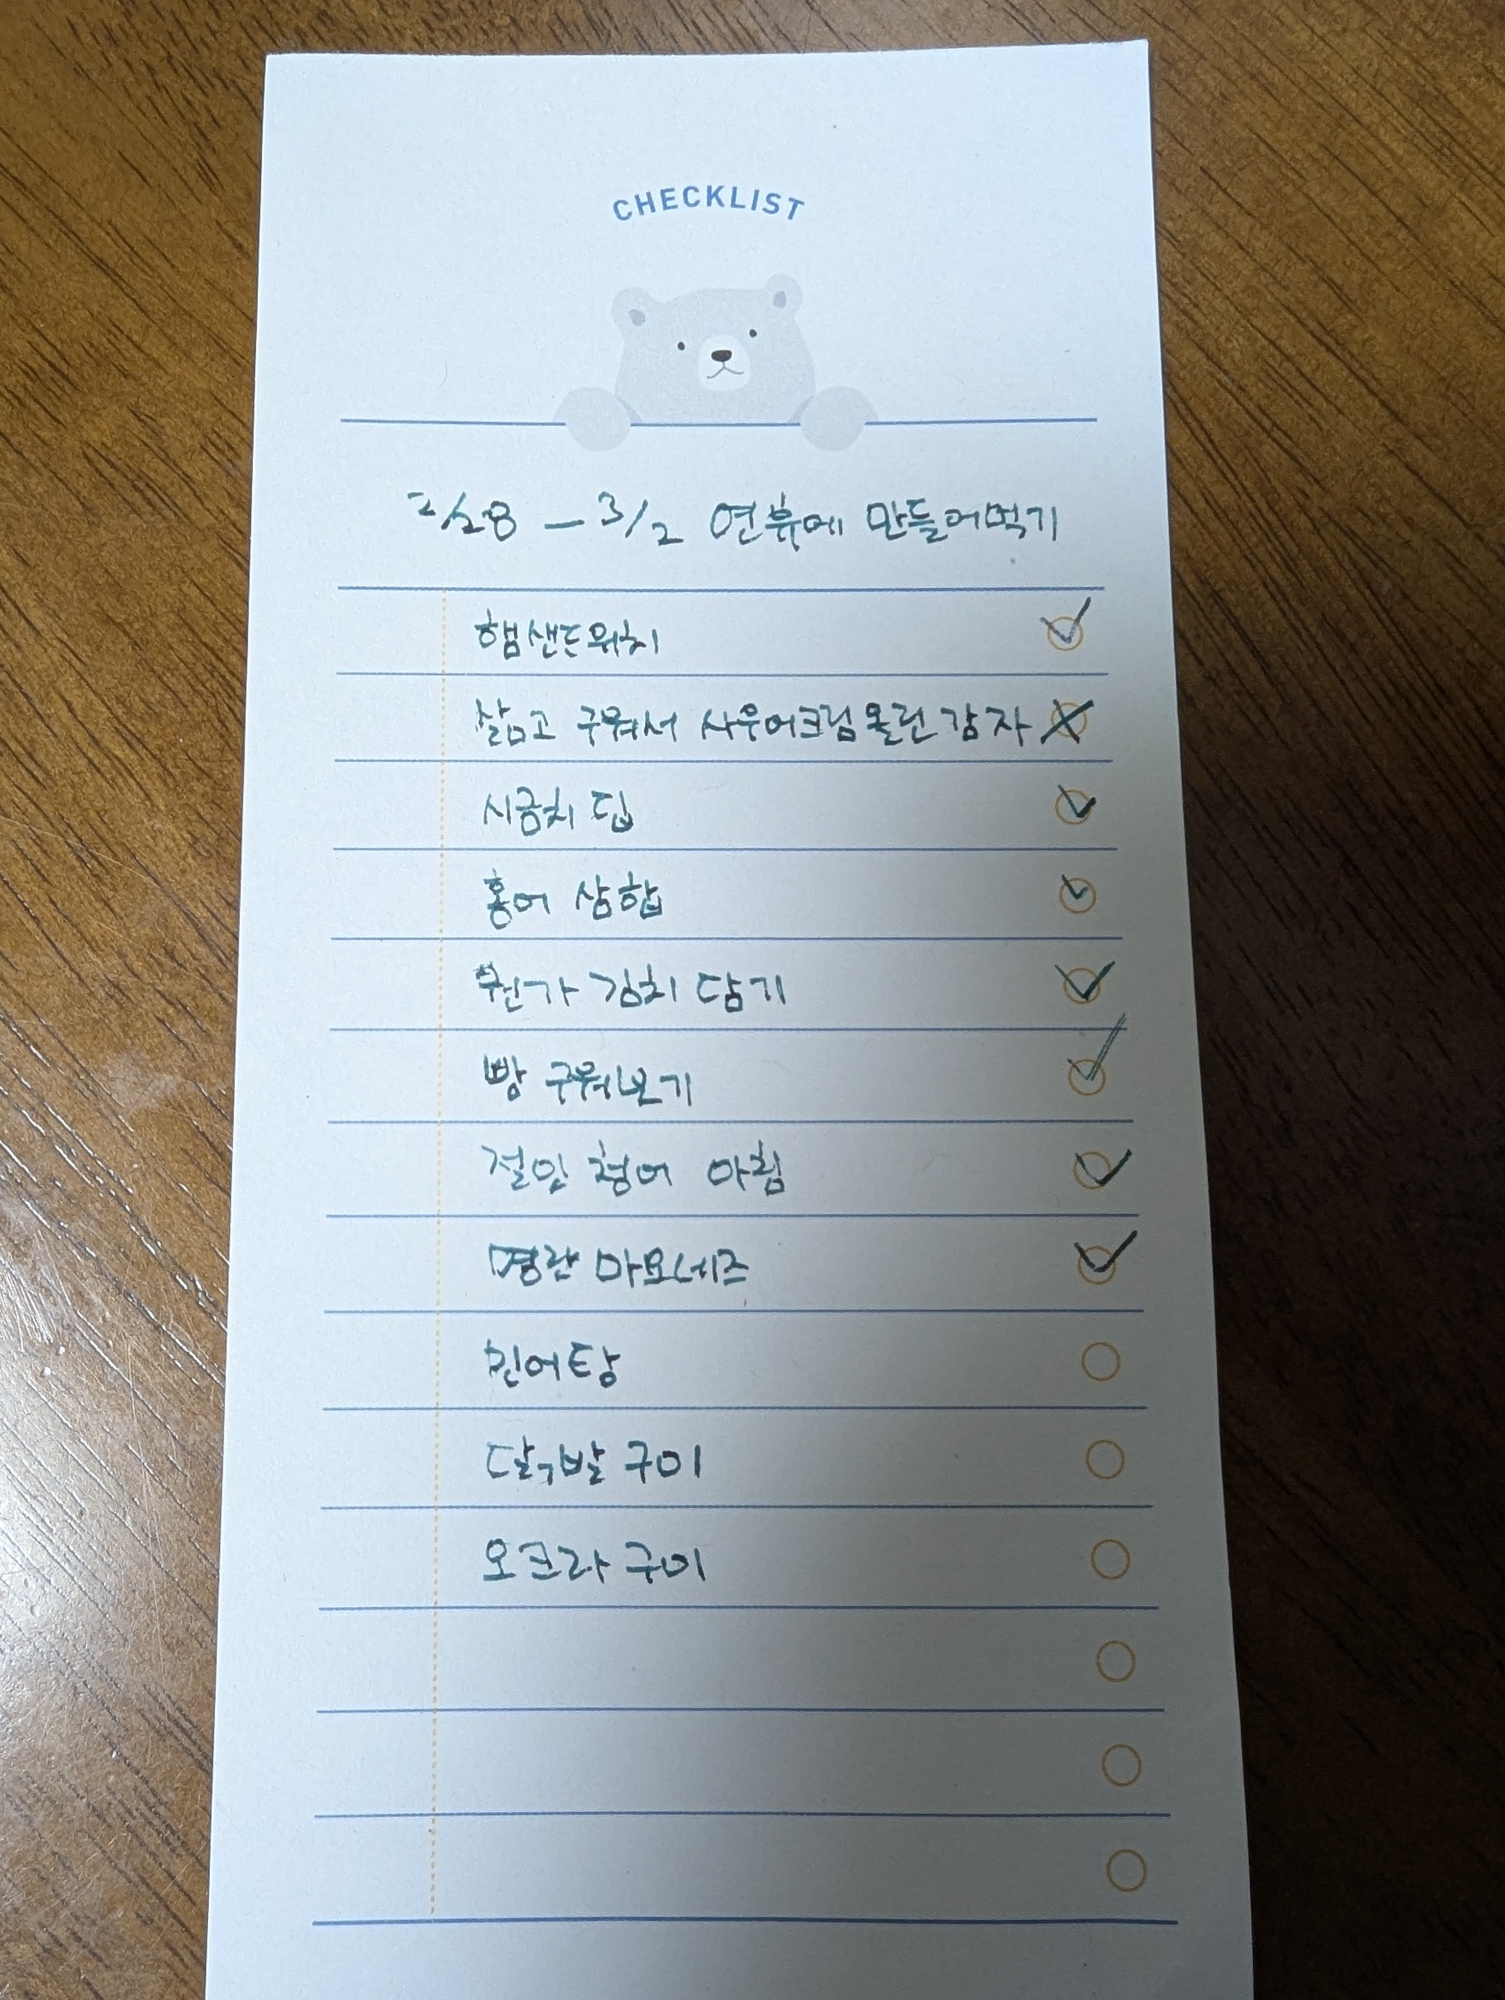 CHECKLIST
2/28 - 3/2 연휴에 만들어먹기
햄샌드위치
삶고 구워서 사우어크림올린감자
시금치 딥
홍어 삼합
뭔가 김치 담기
빵 구워보기
절임 청어 아침
명란 마요네즈
민어탕
닭발 구이
오크라 구이